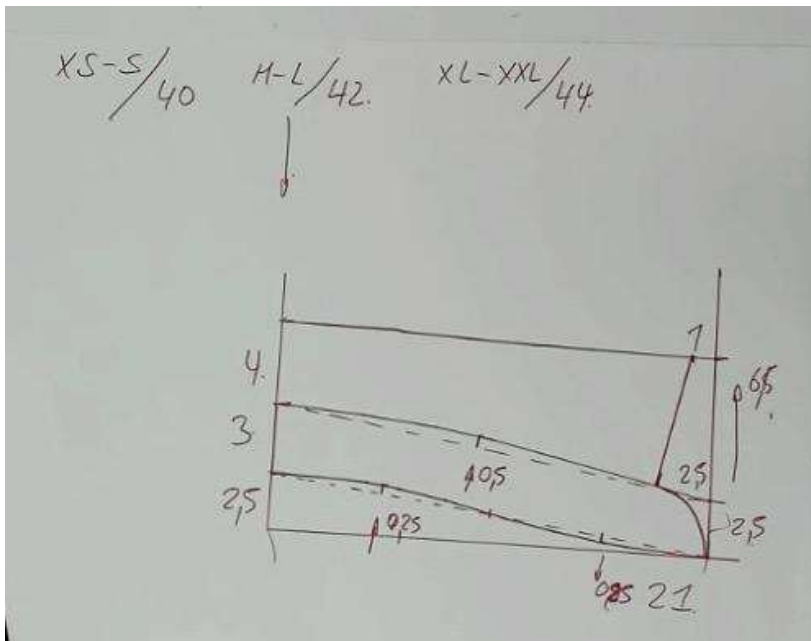 XS-S/40 M-L/42. XL-XXL/44.
1
4.
6,5
3
0,5
2,5
2,5
0,25
2,5
0,25 21